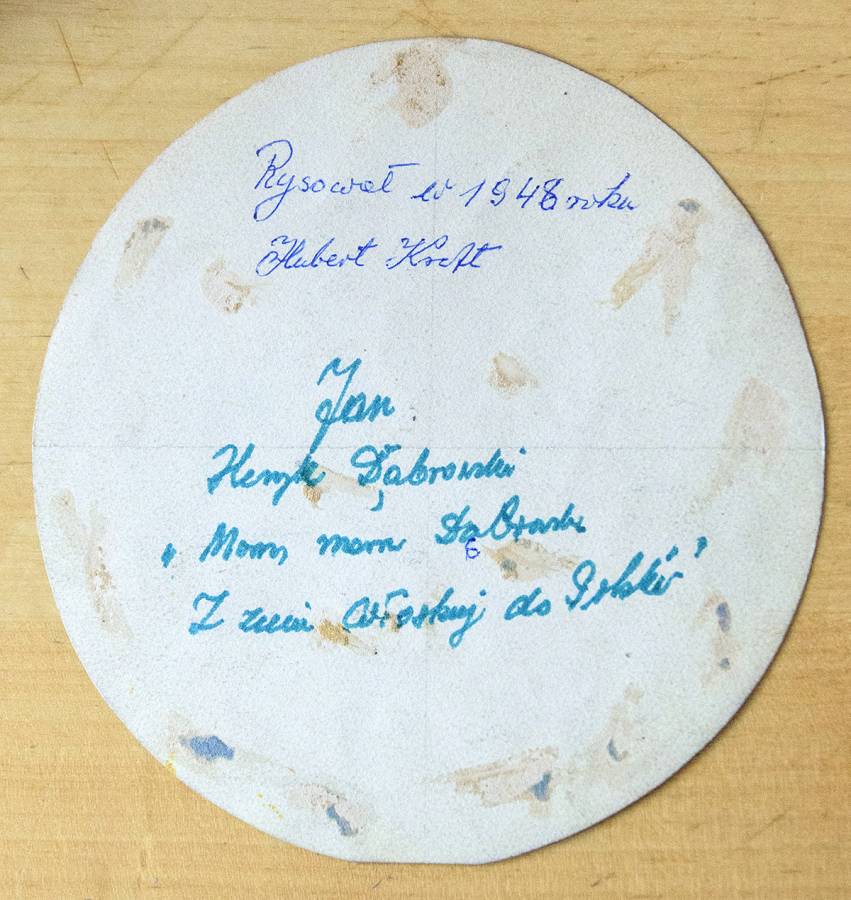 Rysował w 1948 roku
Hubert Kraft
Jan
Henryk Dąbrowski
„ Marsz marsz Dąbrowski
Z ziemi włoskiej do Polski"